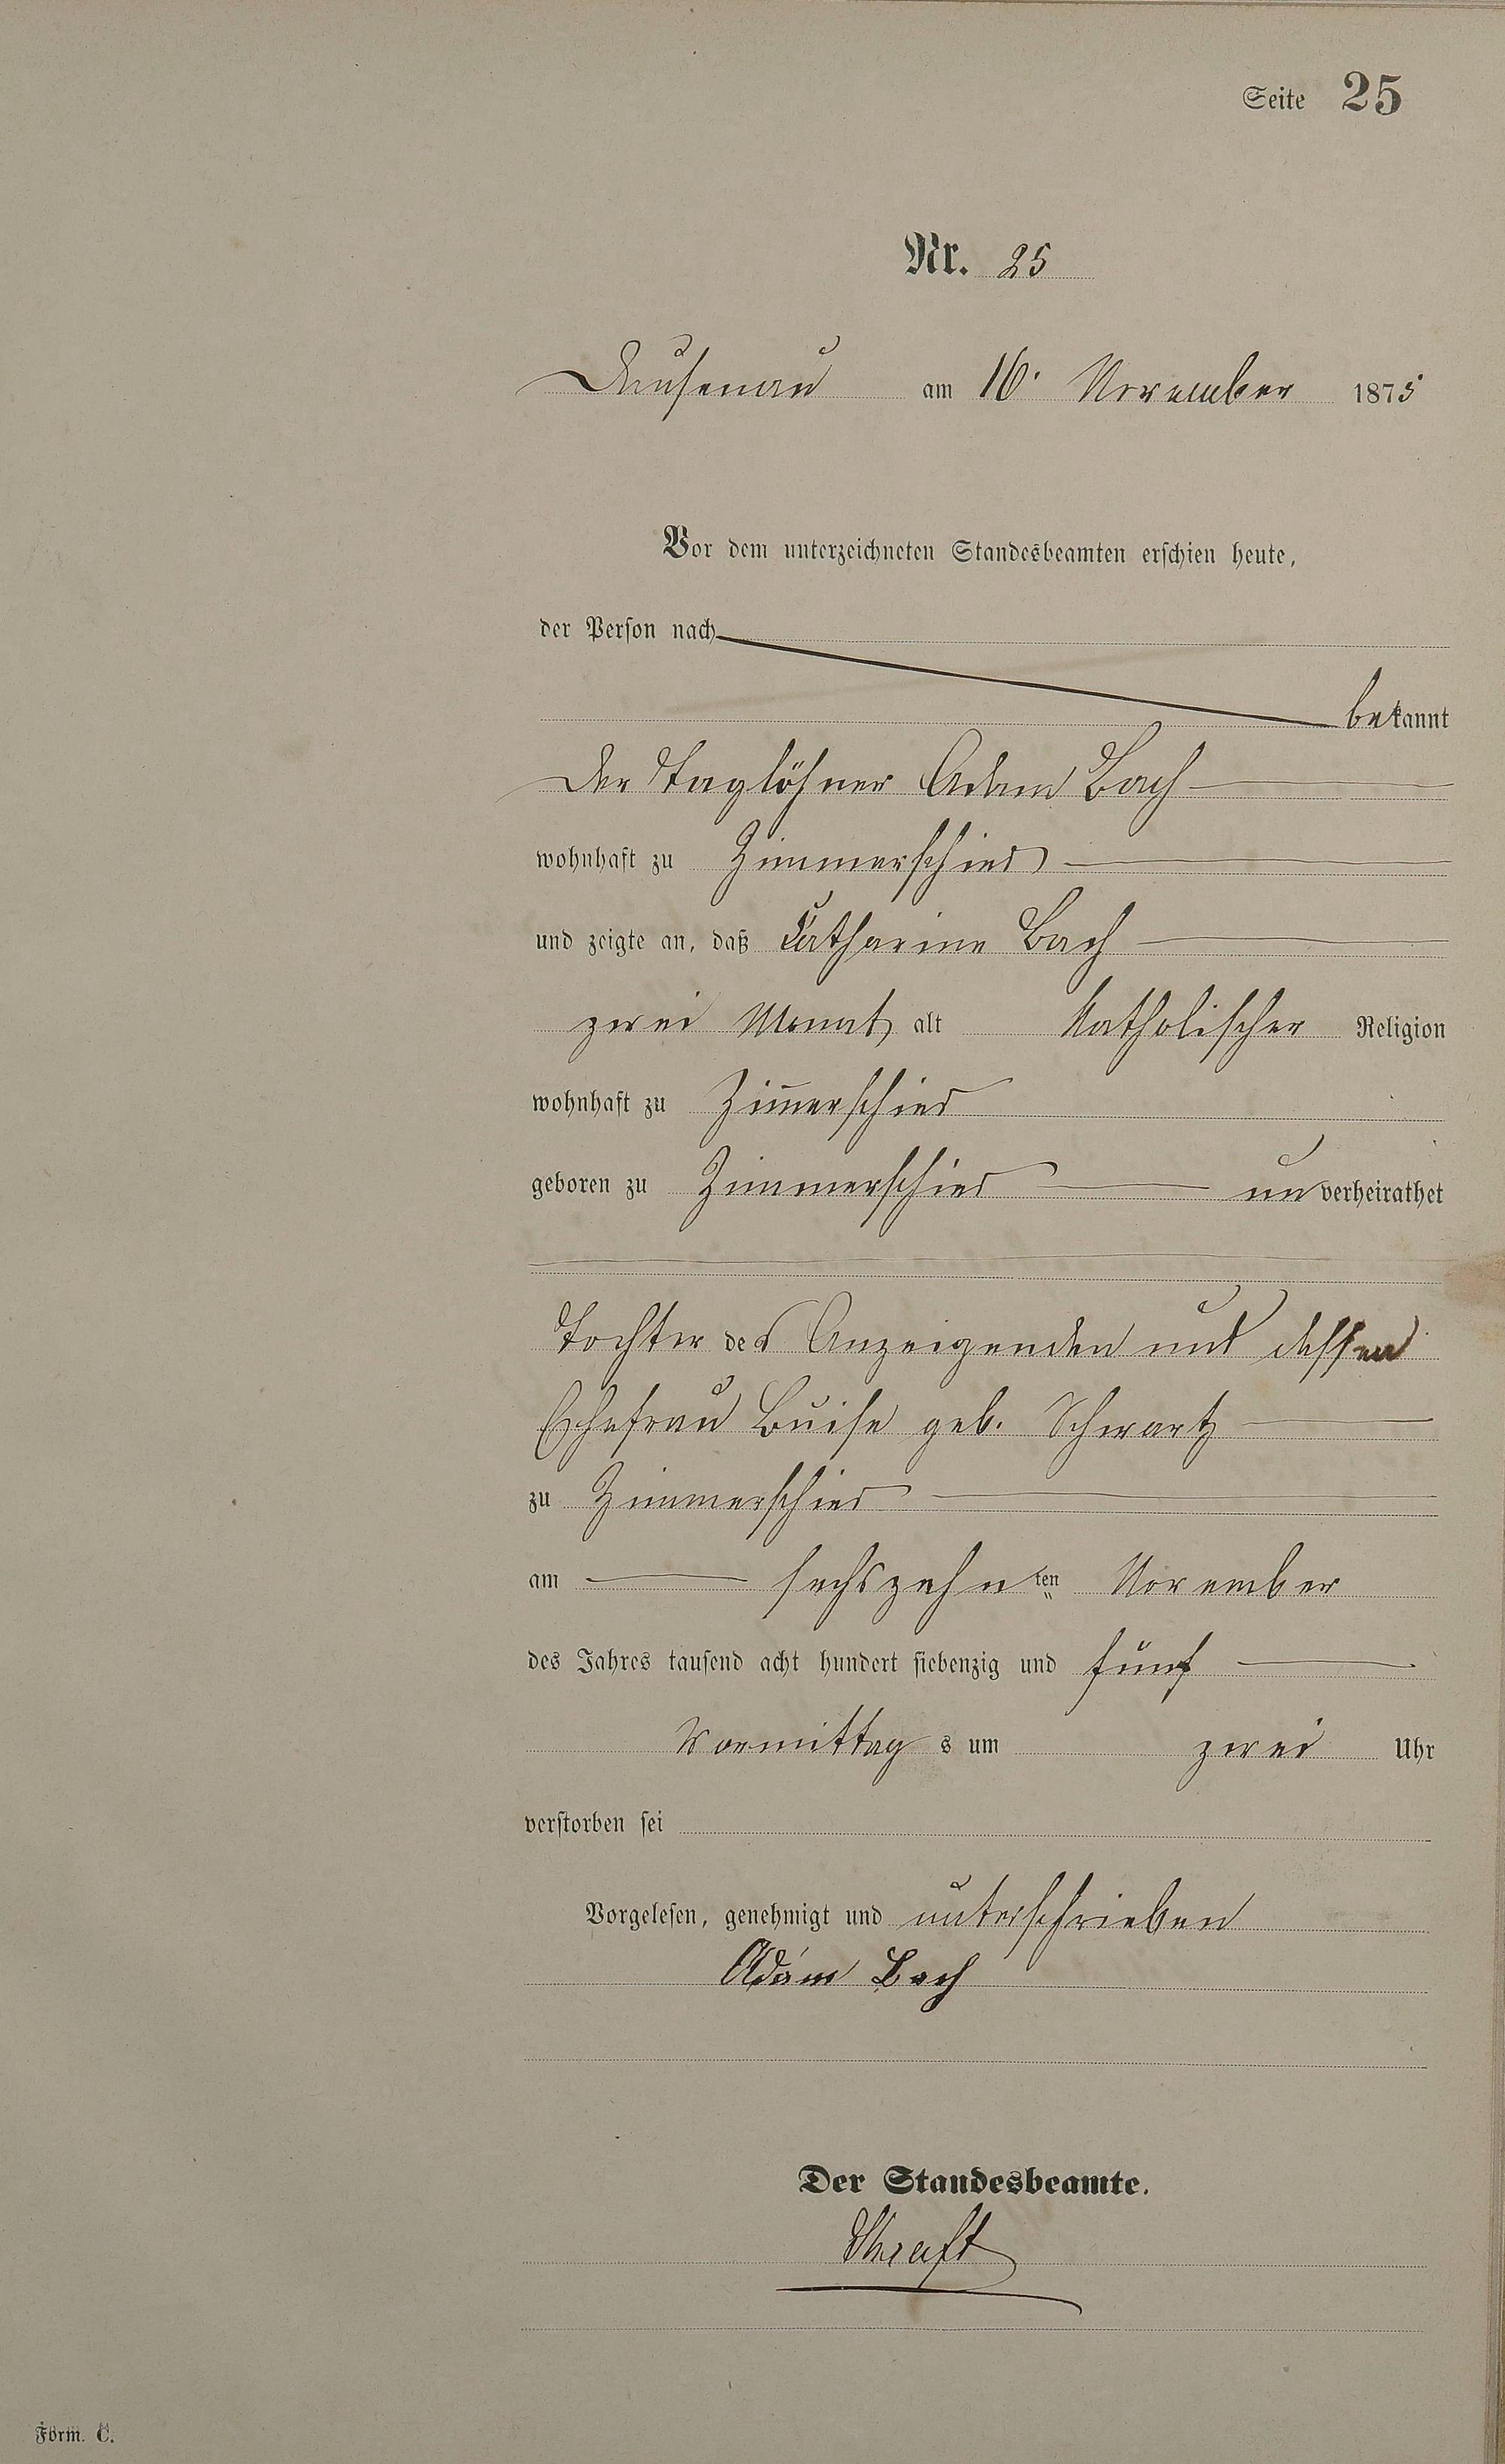 Seite 25
Nr. 25
Dausenau am 16. November 1875
Vor dem unterzeichneten Standesbeamten erschien heute,
der Person nach
bekannt
der Taglöhner Adam Bach
wohnhaft zu Zimmerschied
und zeigte an, daß Katharine Bach
zwei Monat alt katholischer Religion
wohnhaft zu Zim̄erschied
geboren zu Zimmerschied unverheirathet
Tochter des Anzeigenden und dessen
Ehefrau Luise geb. Schwartz
zu Zimmerschied
am sechszehnten November
des Jahres tausend acht hundert siebenzig und fünf
Vormittags um zwei Uhr
verstorben sei
Vorgelesen, genehmigt und unterschrieben
Adam Bach
Der Standesbeamte.
Form. C.